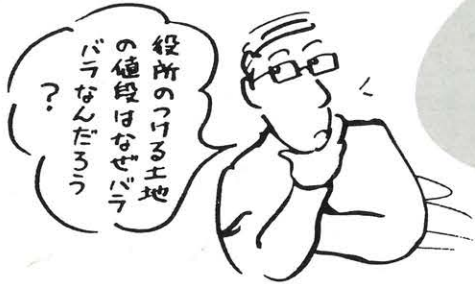 役所のつける土地
の値段はなぜバラ
バラなんだろう
?